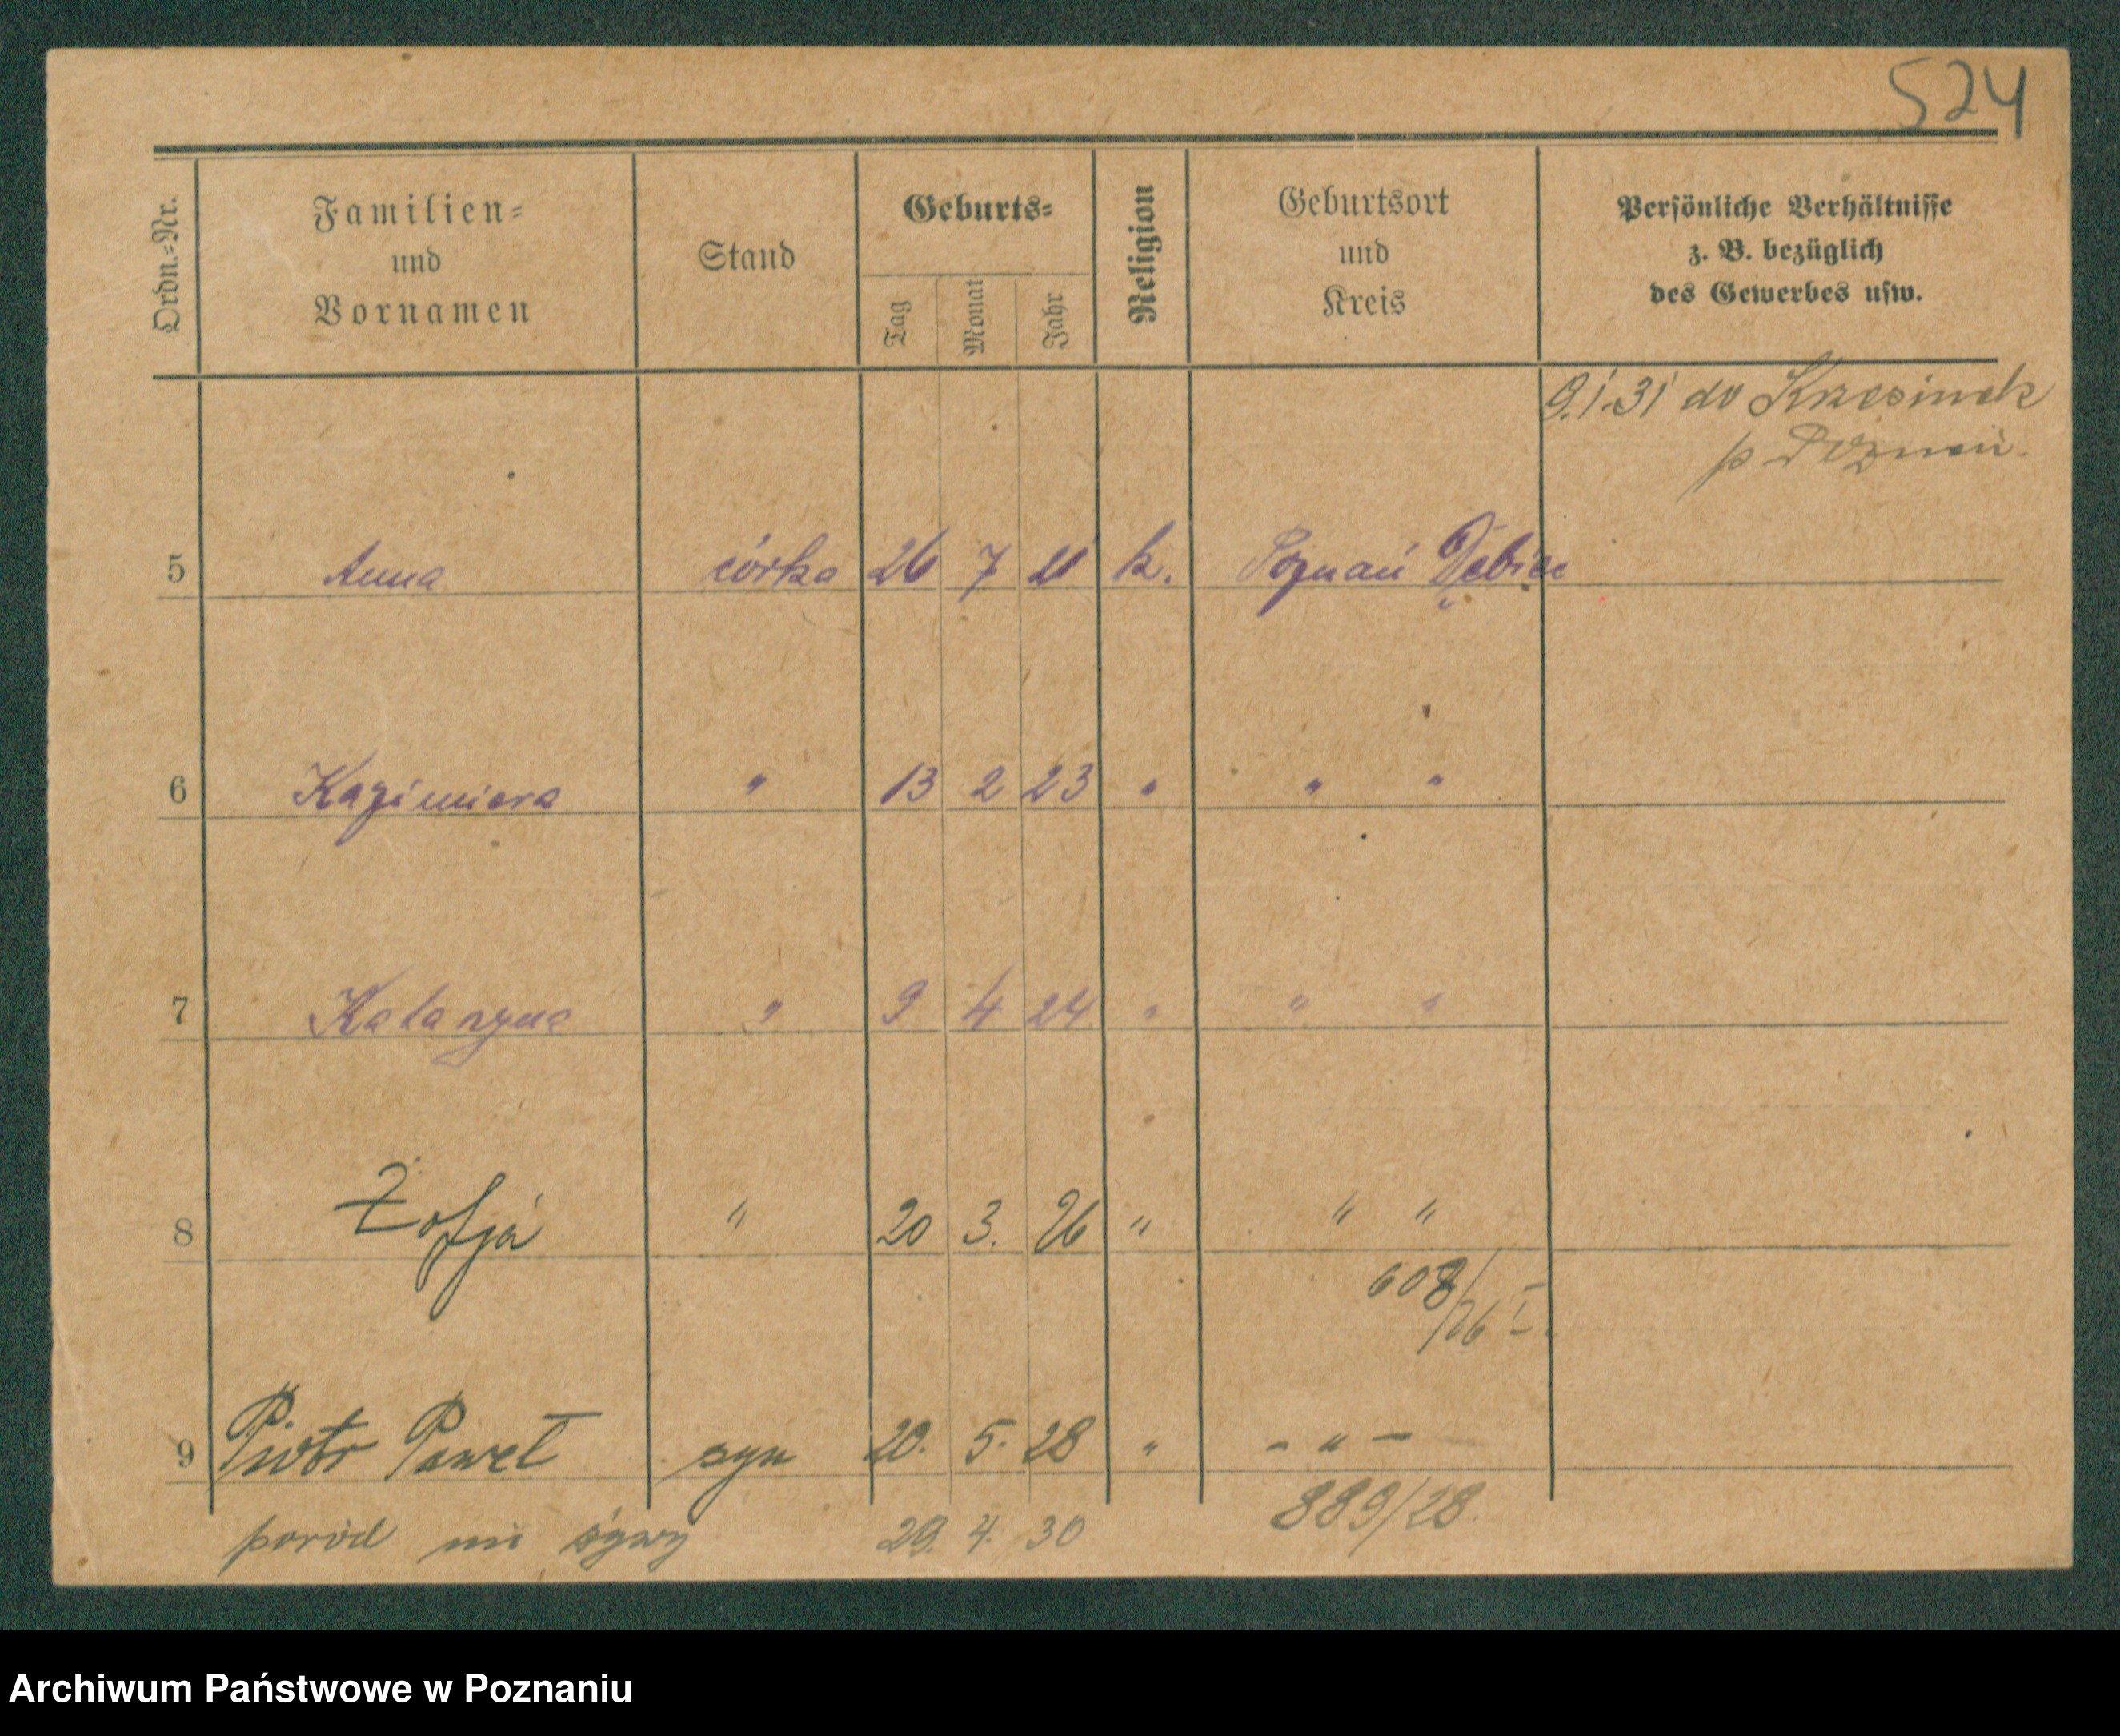 524
Ordn.=Nr.
Familien=
und
Vornamen
Stand
Geburts=
Tag
Monat
Jahr
Religion
Geburtsort
und
Kreis
Persönliche Verhältnisse
z. B. bezüglich
des Gewerbes usw.
9.1.31 do Krzesinek
p Poznań.
5 Anna córka 26 7 21 k. Poznań Dębiec
6 Kazimiera " 13 2 23 " " "
7 Katarzyna " 9 4 24 " " "
8 Zofja " 20 3. 26 " " "
608/26 I
9 Piotr Paweł syn 20. 5. 28 " - " -
889/28
poród nie żywy 29. 4. 30
Archiwum Państwowe w Poznaniu